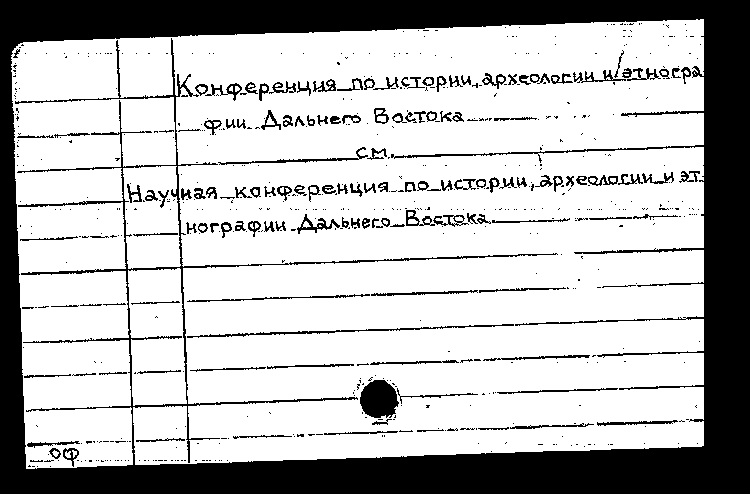 Конференция по истории, археологии и этногра
фии Дальнего Востока
см.
Научная конференция по истории, археологии и эт
нографии Дальнего Востока
оф